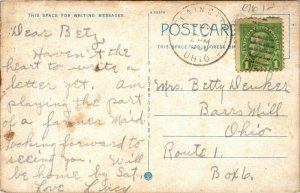 THIS SPACE FOR WRITING MESSAGES.
Dear Bety
Haven't the
heart to write a
letter yet. Am
playing the part
of a farmer Maid.
Looking forward to
seeing you. Will
be home by Sat.
Love Lucy
POSTCARD
THIS SPACE FOR
OHIO
1
Mrs Betty Denker
Barrs Mill
Ohio
Route 1.
Box 6.